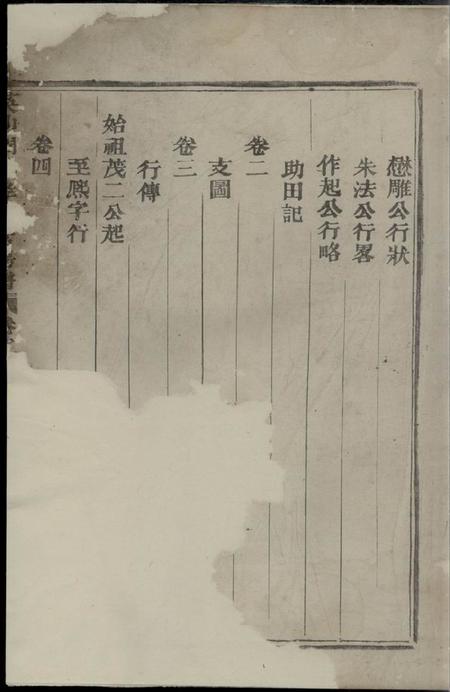 懋雕公行狀
朱法公行畧
作起公行略
助田記
卷二
支圖
卷三
行傳
始祖茂二公起
至熈字行
卷四